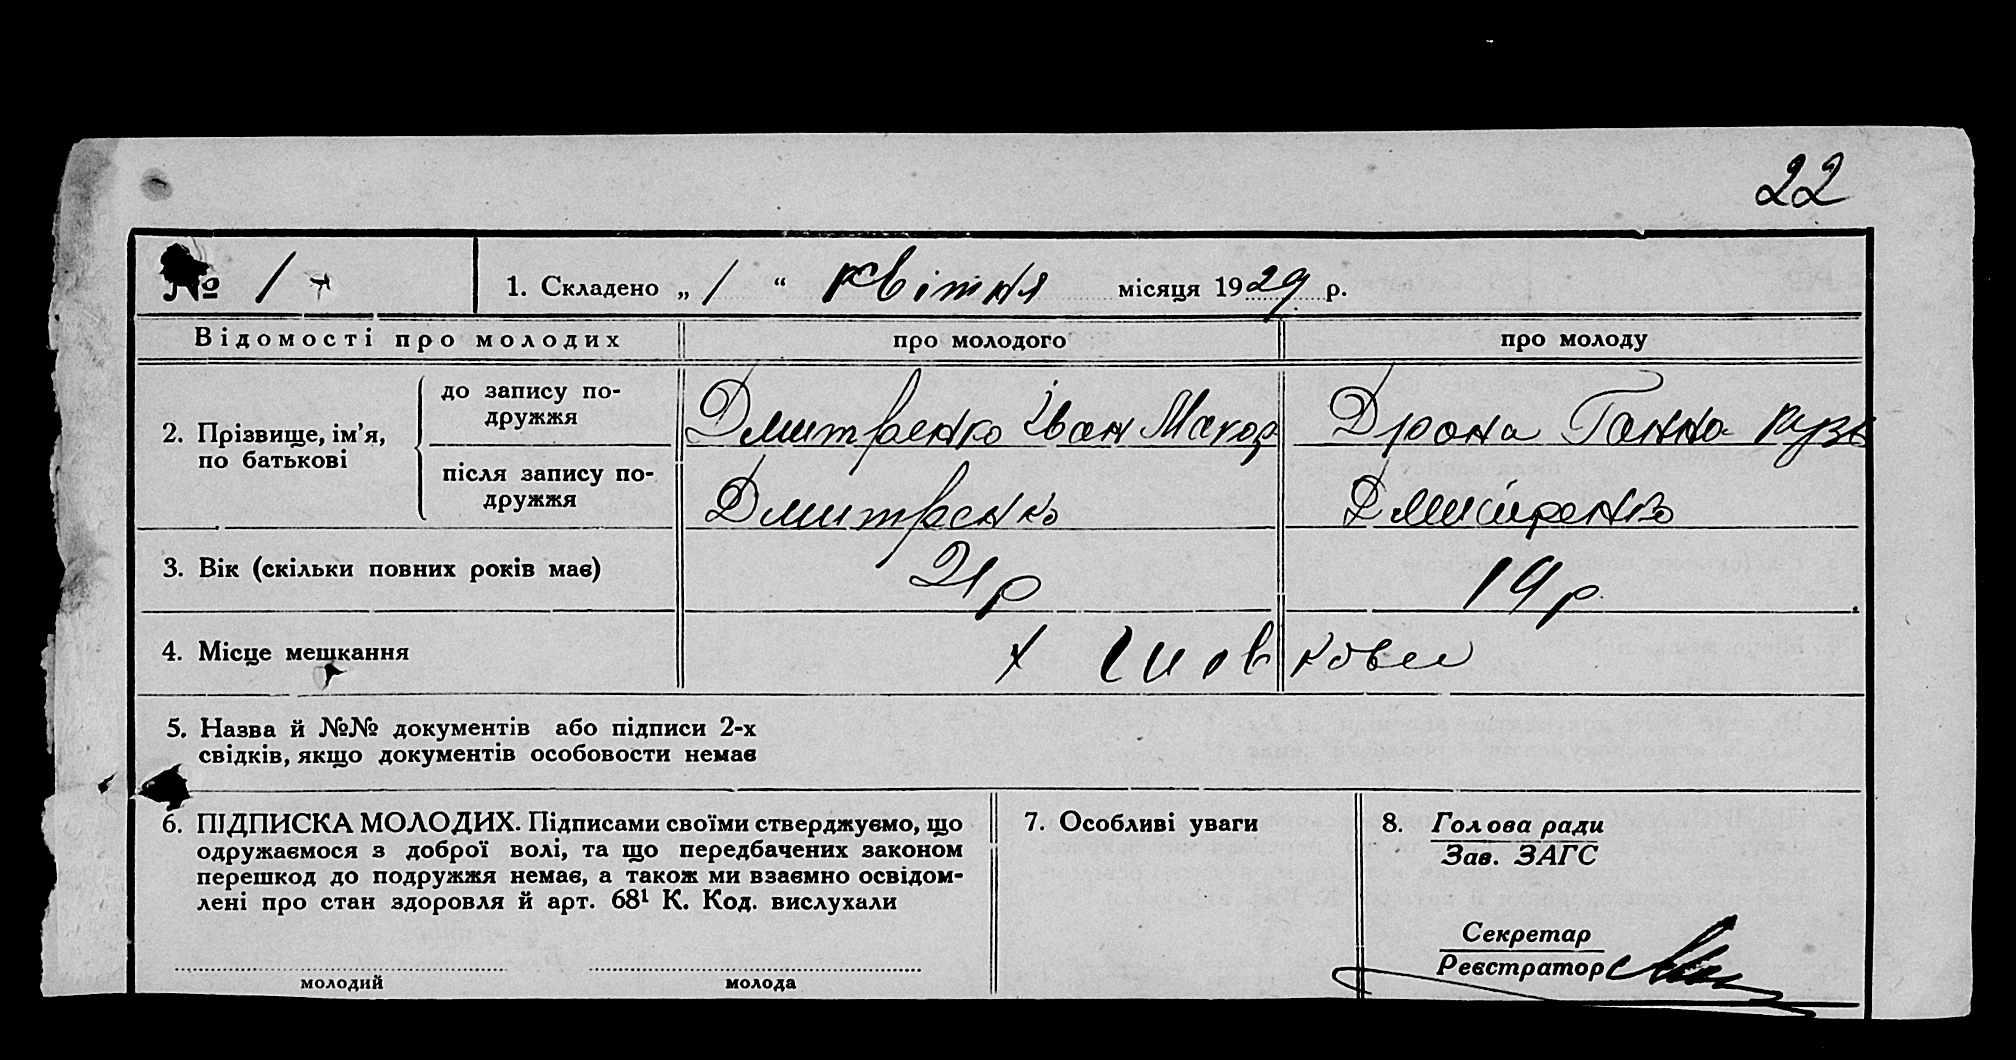 22
№ 1
1. Складено „ 1 “ квітня місяця 1929 р.
Відомості про молодих
про молодого
про молоду
2. Прізвище, ім’я, по батькові
до запису по-
дружжя
Дмитренко Іван Макар
Дрона Ганна Кузь
після запису по-
дружжя
Дмитренко
Дмитренко
3. Вік (скільки повних років має)
21 р
19 р.
4. Місце мешкання
х
5. Назва й №№ документів або підписи 2-х
свідків, якщо документів особовости немає
6. ПІДПИСКА МОЛОДИХ. Підписами своїми стверджуємо, що
одружаємося з доброї волі, та що передбачених законом
перешкод до подружжя немає, а також ми взаємно освідом-
лені про стан здоровля й арт. 68¹ К. Код. вислухали
молодий
молода
7. Особливі уваги
8. Голова ради
Зав. ЗАГС
Секретар
Реєстратор